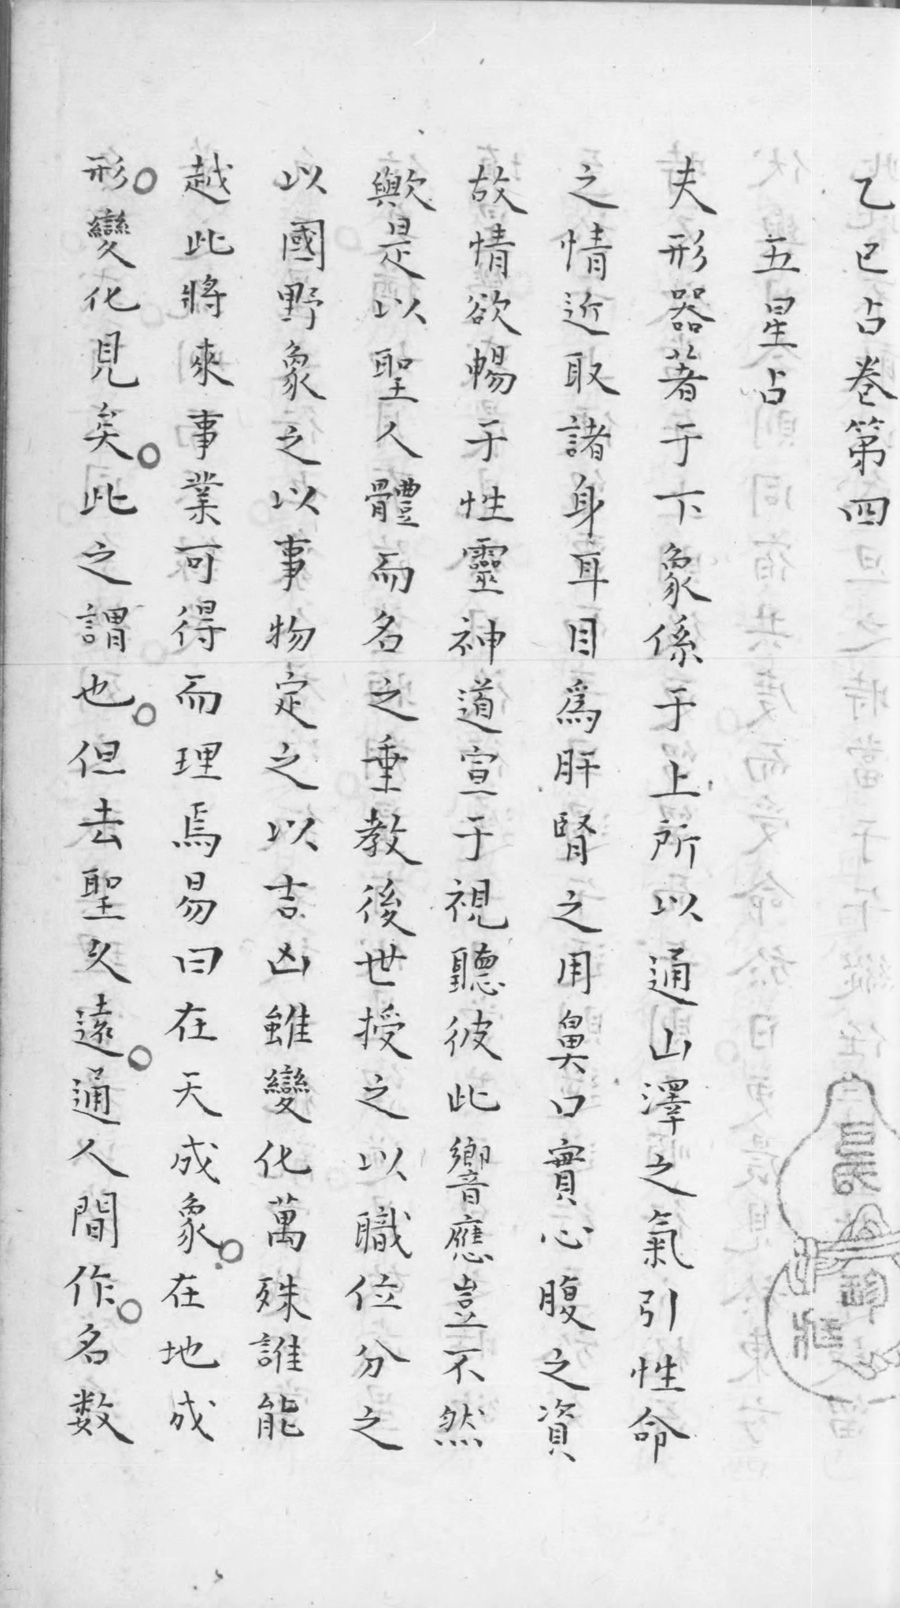 乙巳占卷第四
五星占
夫形器著于下象係于上所以通山澤之氣引性命
之情近取諸身耳目為肝腎之用鼻口實心腹之資
故情欲暢于性靈神道宣于視聽彼此響應豈不然
歟是以聖人體而名之垂教後世授之以職位分之
以國野象之以事物定之以吉凶雖變化萬殊誰能
越此將來事業可得而理焉易曰在天成象在地成
形變化見矣此之謂也但去聖久遠通人間作名数